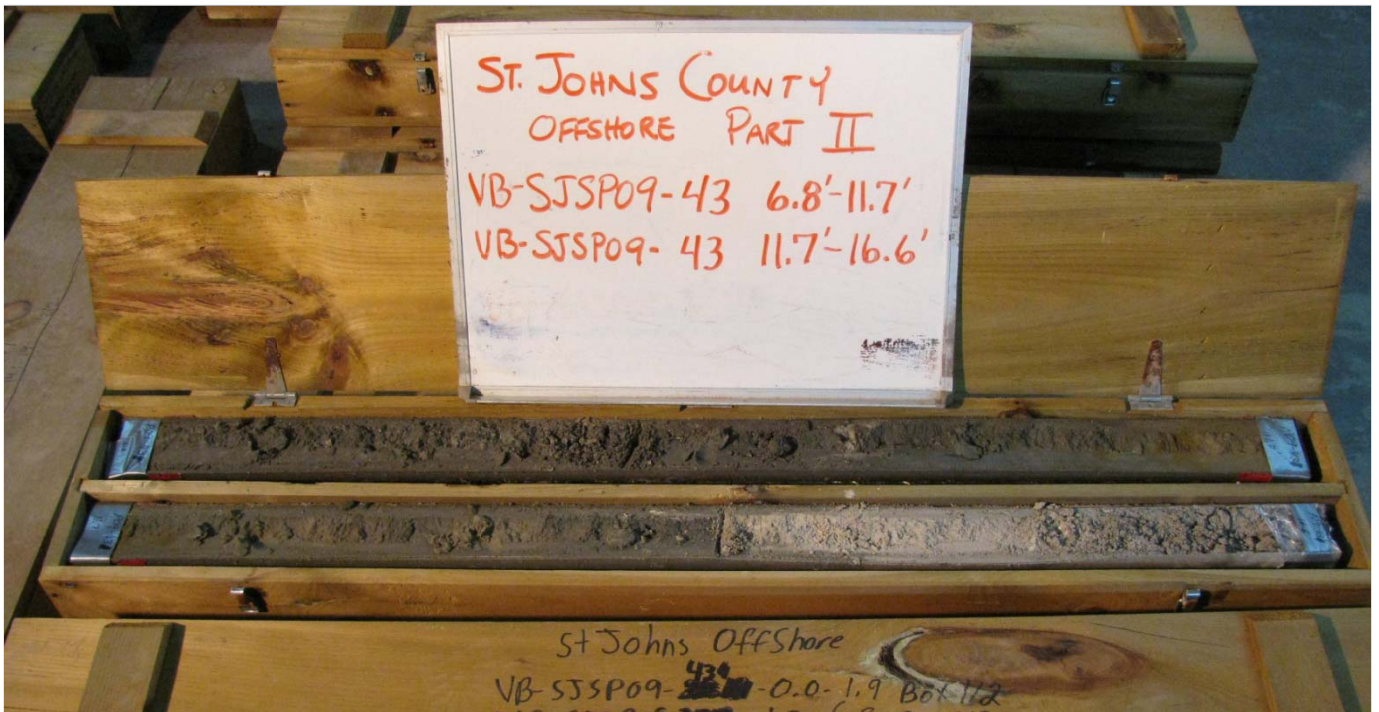 ST. JOHNS COUNTY
OFFSHORE PART II
VB-SJSP09-43 6.8'-11.7'
VB-SJSP09-43 11.7'-16.6'
St Johns OffShore
VB-SJSP09- 43 -0.0-1.9 Box 1/2